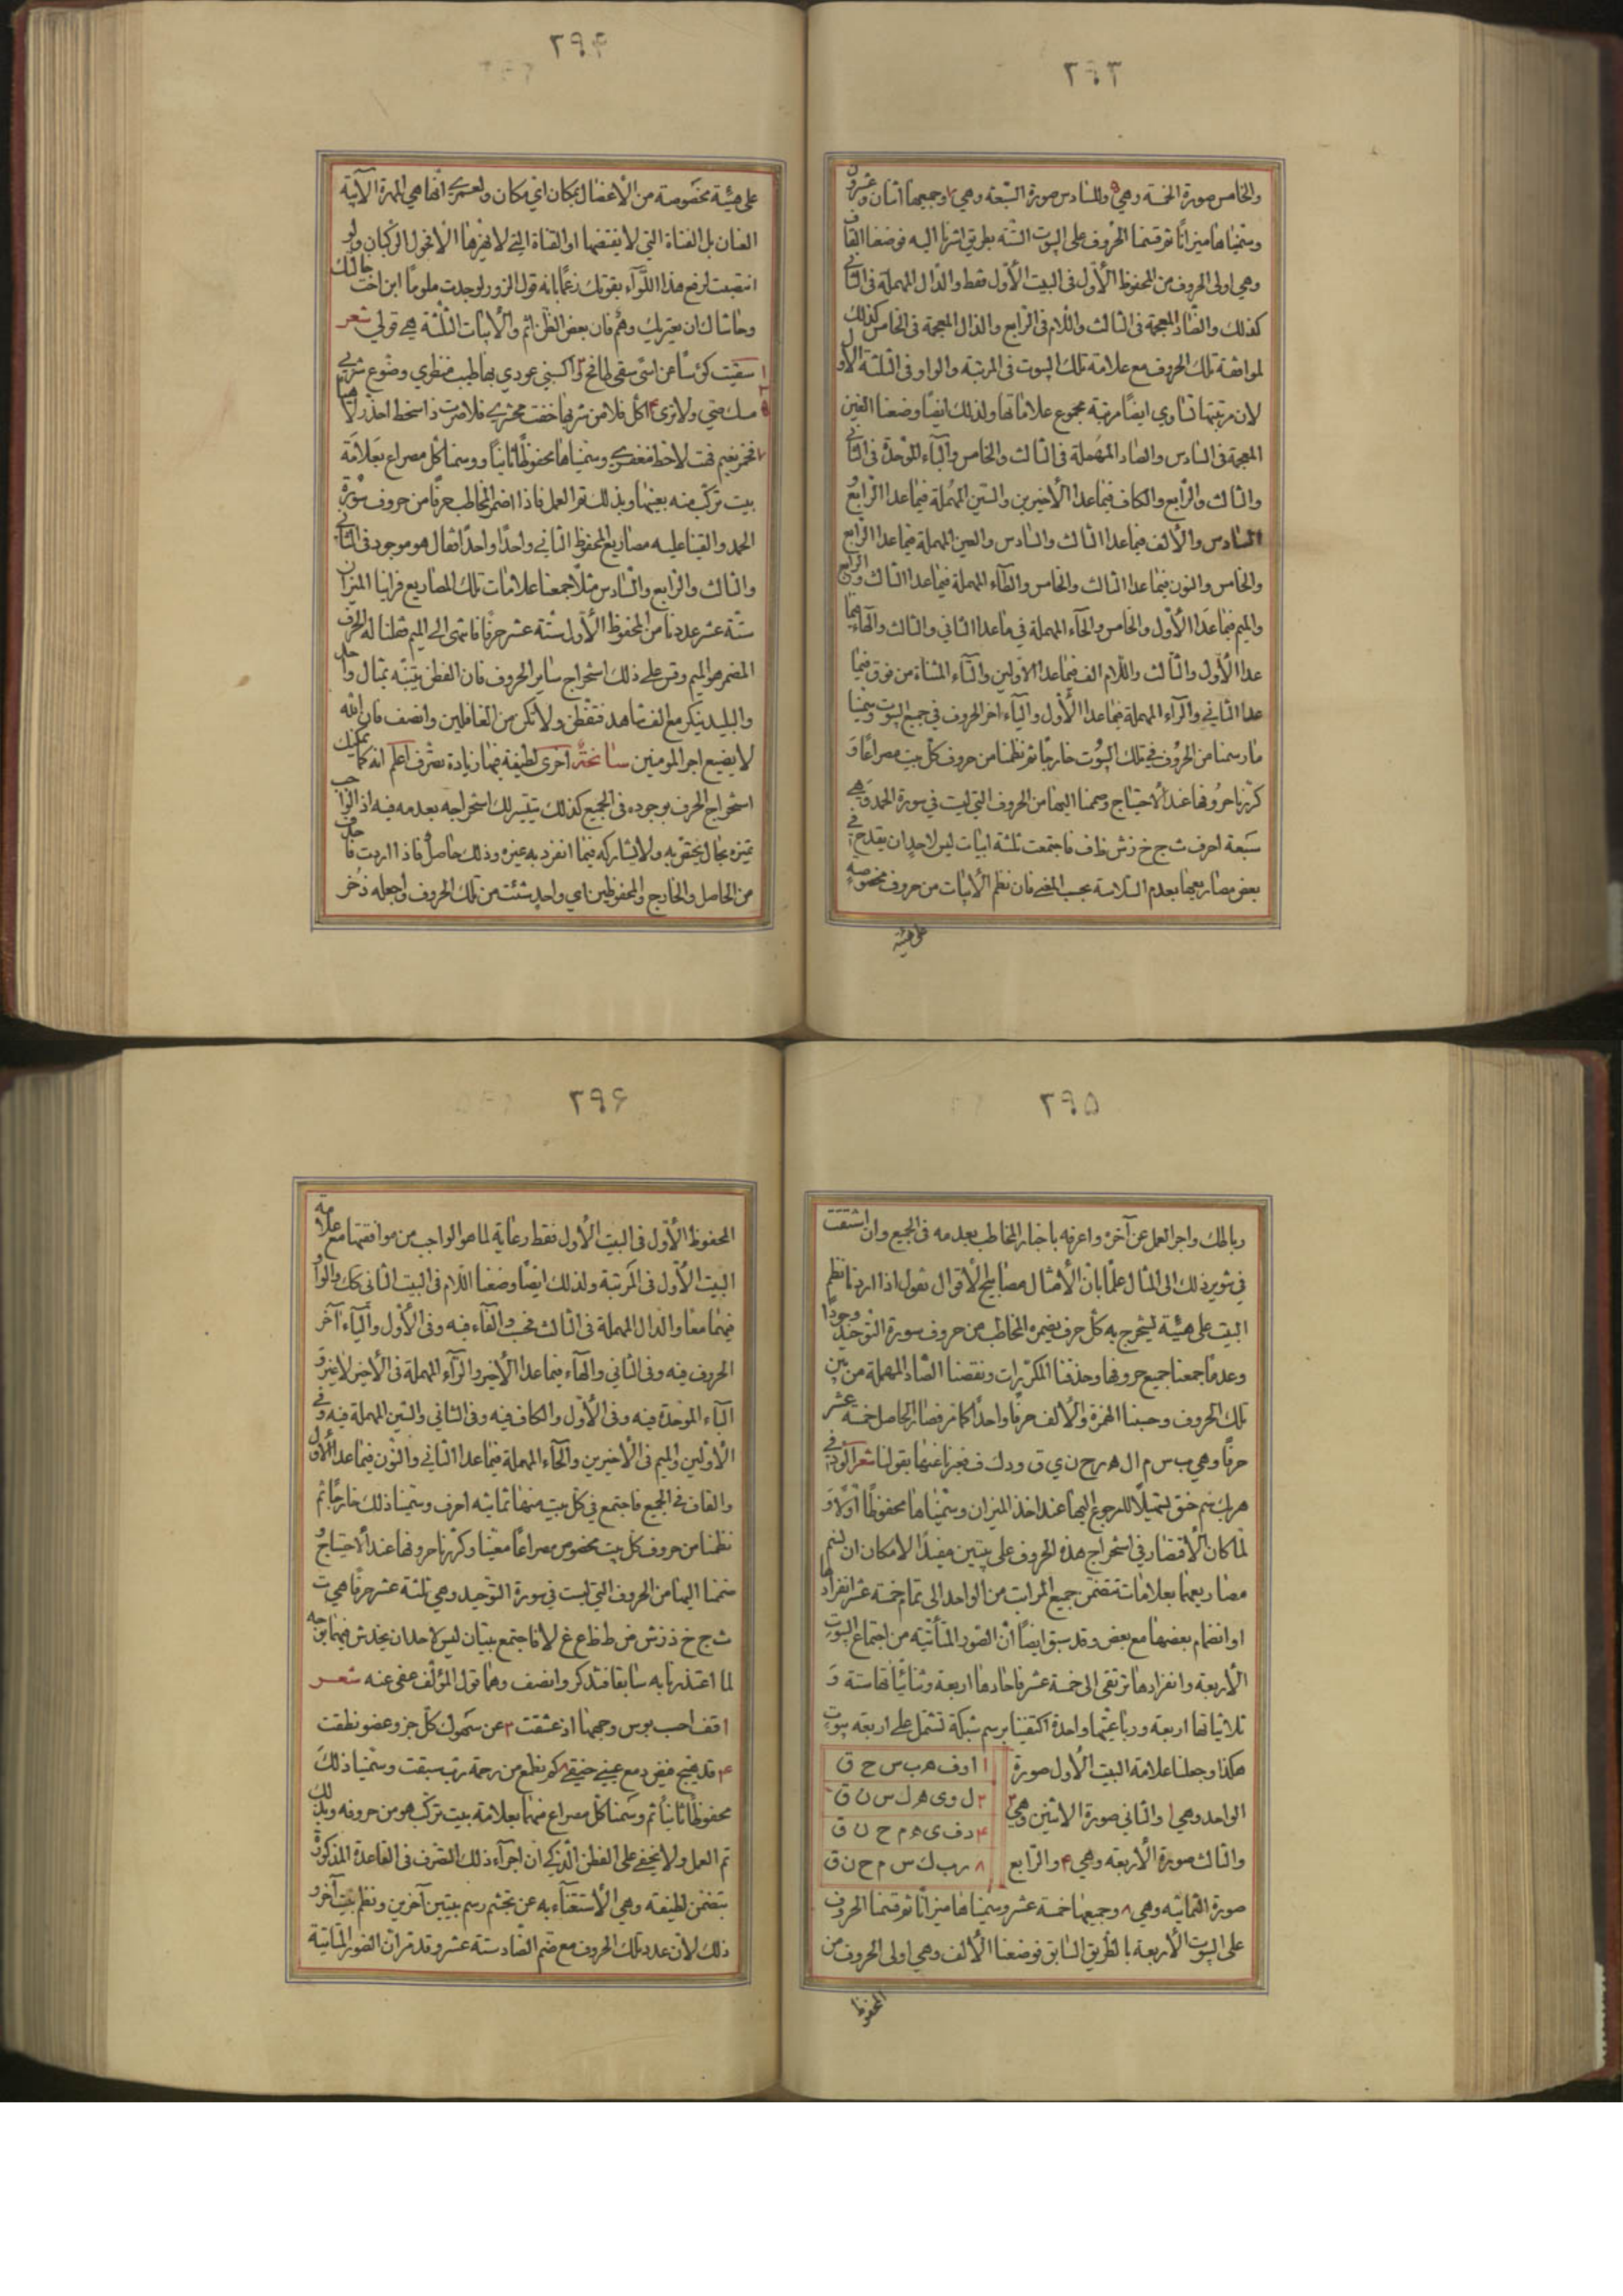 ٢٩٣
والخامس صورة الخمسة وهي ٥ وللسادس صورة السبعة وهي ٧ وجميعها اثنان وعشرون
وسميناها ميزاناً ثم قسمنا الحروف على البيوت الستة بطريق اشرنا اليه فوضعنا القاف
وهي اولى الحروف من المحفوظ الأول في البيت الأول فقط والدال المهملة في الثاني
كذلك والضاد المعجمة في الثالث واللام في الرابع والذال المعجمة في الخامس كذلك
لموافقة تلك الحروف مع علامة تلك البيوت في المرتبة والواو في الثلثة الأول
لان مرتبتها تساوي ايضاً مرتبة مجموع علاماتها ولذلك ايضاً وضعنا الغين
المعجمة في السادس والصاد المهملة في الثالث والخامس والباء الموحدة في الثاني
والثالث والرابع والكاف فيما عدا الأخيرين والسين المهملة فيما عدا الرابع و
السادس والألف فيما عدا الثالث والسادس والعين المهملة فيما عدا الرابع
والخامس والنون فيما عدا الثالث والخامس والطاء المهملة فيما عدا الثالث والرابع
والميم فيما عدا الأول والخامس والحاء المهملة في ما عدا الثاني والثالث والهاء فيما
عدا الأول والثالث واللام الف فيما عدا الاولين والتاء المثناة من فوق فيما
عدا الثاني والراء المهملة فيما عدا الأول والياء آخر الحروف في جميع البيوت وسمينا
ما رسمنا من الحروف في تلك البيوت خارجاً ثم نظمنا من حروف كل بيت مصراعاً و
كررنا حروفها عند الاحتياج وضممنا اليها من الحروف التي ليست في سورة الحمد وهي
سبعة احرف ث ج خ ز ش ظ ف فاجتمعت ثلثة ابيات ليس لاحد ان يقدح في
بعض مصاريعها بعدم السلاسة بحسب المعنى فان نظم الأبيات من حروف مخصوصة
على هيئة
٢٩۴
على هيئة مخصوصة من الأعضال بمكان اي مكان ولعمري انها هي المهرة الآبية
العنان بل الفتاة التي لا يفتضها او القناة التي لا يهزها الا فحول الركبان ولو
انتصبت لرفع هذا اللواء بقوتك زعماً بانه قول الزور لوجدت ملوماً ابن اخت خالتك
وحاشاك ان يعتريك وهم فان بعض الظن اثم والأبيات الثلثة هي قولي شعر
١ سقيت كؤساً عن اسى سقى طافح ٢ واكسبني عودي بها طيب منظري وضوع شربي
مسك ضني ولا ترى ۴ اكل فلا من شربها خفت محشري ٥ فلا صرت ذا سخط احذر لاهياً
٧ فخمر نعيم فت لاحظ مغفري وسميناها محفوظاً ثانياً ووسمنا كل مصراع بعلامة
بيت تركب منه بعينها وبذلك تم العمل فاذا اضمر المخاطب حرفاً من حروف سورة
الحمد والقينا عليه مصاريع المحفوظ الثاني واحداً واحداً فقال هو موجود في الثاني
والثالث والرابع والسادس مثلاً جمعنا علامات تلك المصاريع فراينا الميزان
ستة عشر عددنا من المحفوظ الأول ستة عشر حرفاً فانتهى الى الميم فقلنا له الحرف
المضمر هو الميم وقس على ذلك استخراج سائر الحروف فان الفطن يتنبه بمثال واحد
والبليد ينكر مع الف شاهد فتفطن ولا تكن من الغافلين وانصف فان الله
لا يضيع اجر المومنين سانحة اخرى لطيفة فيها زيادة تصرف اعلم انه كما يمكنك
استخراج الحرف بوجوده في الجميع كذلك يتيسر لك استخراجه بعدمه فيه اذ الواجب
تميزه بحال يختص به ولا يشاركه فيما انفرد به غيره وذلك حاصل فاذا اردت فاحذف
من الحاصل والخارج والمحفوظين اي واحد شئت من تلك الحروف واجعله ذخر
٢٩۵
ربالك واجر العمل عن آخره واعرفه باخبار المخاطب بعدمه في الجميع وان اشتقت
في تنوير ذلك الى المثال علماً بان الأمثال مصابيح الأقوال نقول اذا اردنا نظم
البيت على هيئة ليخرج به كل حرف يضمره المخاطب من حروف سورة التوحيد وجوداً
وعدماً جمعنا جميع حروفها وحذفنا المكررات ونقصنا الصاد المهملة من بين
تلك الحروف وحسبنا الهمزة والألف حرفاً واحداً كما مر فصار الحاصل خمسة عشر
حرفاً وهي ب س م ا ل ه ر ح ن ي ق و د ك ف فعبرنا عنها بقولنا شعر الود في
هربك نم حق تسهيلاً للرجوع اليها عند اخذ الميزان وسميناها محفوظاً اولاً و
لما كان الأقتصار في استخراج هذه الحروف على بيتين مفيداً لامكان ان نسم
مصاريعها بعلامات تتضمن جميع المراتب من الواحد الى تمام خمسة عشر انفراداً
او انضمام بعضها مع بعض وقد سبق ايضاً ان الصور المتأتية من اجتماع البيوت
الأربعة وانفرادها ترتقي الى خمسة عشر فاحادها اربعة وثنائياتها ستة و
ثلاثياتها اربعة ورباعيتها واحدة اكتفينا برسم شبكة تشتمل على اربعة بيوت
هكذا وجعلنا علامة البيت الأول صورة
الواحد وهي ١ والثاني صورة الاثنين وهي ٢
والثالث صورة الأربعة وهي ۴ والرابع
١ ا و ف ه ب س ح ق
٢ ل و ى ه ك س ن ق
۴ د ف ى ه م ح ن ق
٨ ر ب ك س م ح ن ق
صورة الثمانية وهي ٨ وجميعها خمسة عشر وسميناها ميزاناً ثم قسمنا الحروف
على البيوت الأربعة بالطريق السابق فوضعنا الألف وهي اولى الحروف من
المحفوظ
٢٩۶
المحفوظ الأول في البيت الأول فقط رعاية لما هو الواجب من موافقتها مع علامة
البيت الأول في المرتبة ولذلك ايضاً وضعنا اللام في البيت الثاني كك والواو
فيهما معاً والدال المهملة في الثالث فحسب والفاء فيه وفي الأول والياء آخر
الحروف فيه وفي الثاني والهاء فيما عدا الأخير والراء المهملة في الأخير لاغير و
الباء الموحدة فيه وفي الأول والكاف فيه وفي الثاني والسين المهملة فيه وفي
الأولين والميم في الأخيرين والحاء المهملة فيما عدا الثاني والنون فيما عدا الأول
والقاف في الجميع فاجتمع في كل بيت منها ثمانية احرف وسمينا ذلك خارجاً ثم
نظمنا من حروف كل بيت مخصوص مصراعاً معيناً وكررنا حروفها عند الأحتياج و
ضممنا اليها من الحروف التي ليست في سورة التوحيد وهي ثلثة عشر حرفاً هي ت
ث ج خ ذ ز ش ض ط ظ ع غ لا فاجتمع بيتان ليس لاحد ان يخدش فيهما بوجه
لما اعتذرنا به سابقاً فتذكر وانصف وهما قول المؤلف عفى عنه شعر
اقف احب بوس وجهها اذ عشقت ٢ عن سهوك كل جزو عضو نطقت
۴ قد هيج فيض دمع عيني حنيقي ٨ كم نطمع من رحمة رب سبقت وسمينا ذلك
محفوظاً ثانياً ثم وسمنا كل مصراع منهما بعلامة بيت تركب هو من حروفه وبذلك
تم العمل ولا يخفى على الفطن الذكي ان اجراء ذلك التصرف في القاعدة المذكورة
يتضمن لطيفة وهي الأستغناء به عن تجشم رسم بيتين آخرين ونظم بيت آخر و
ذلك لأن عدد تلك الحروف مع ضم الصاد ستة عشر وقد مر ان الصور المتأتية